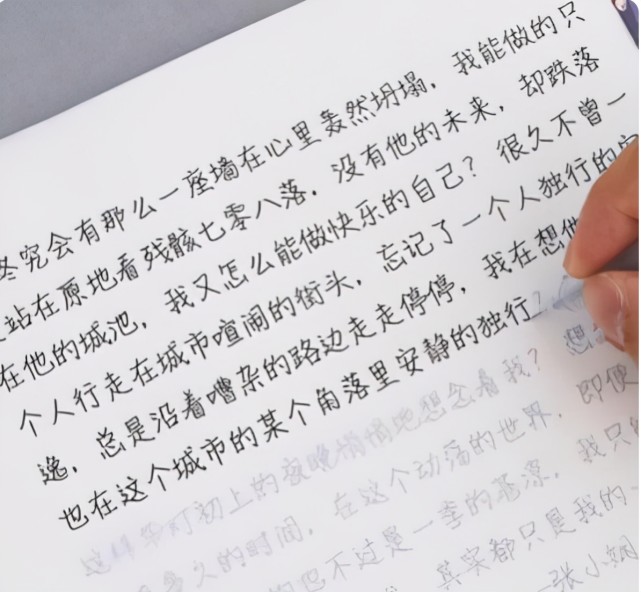 终究会有那么一座墙在心里轰然坍塌，我能做的只
站在原地看残骸七零八落，没有他的未来，却跌落
在他的城池，我又怎么能做快乐的自己？很久不曾一
个人行走在城市喧闹的街头，忘记了一个人独行的
逸，总是沿着嘈杂的路边走走停停，我在想他
也在这个城市的某个角落里安静的独行？想
这样华灯初上的夜晚悄悄地想念着我？即便
多久的时间，在这个动荡的世界，我只
也不过是一季的悲凉，其实都只是我的一
—张小娴